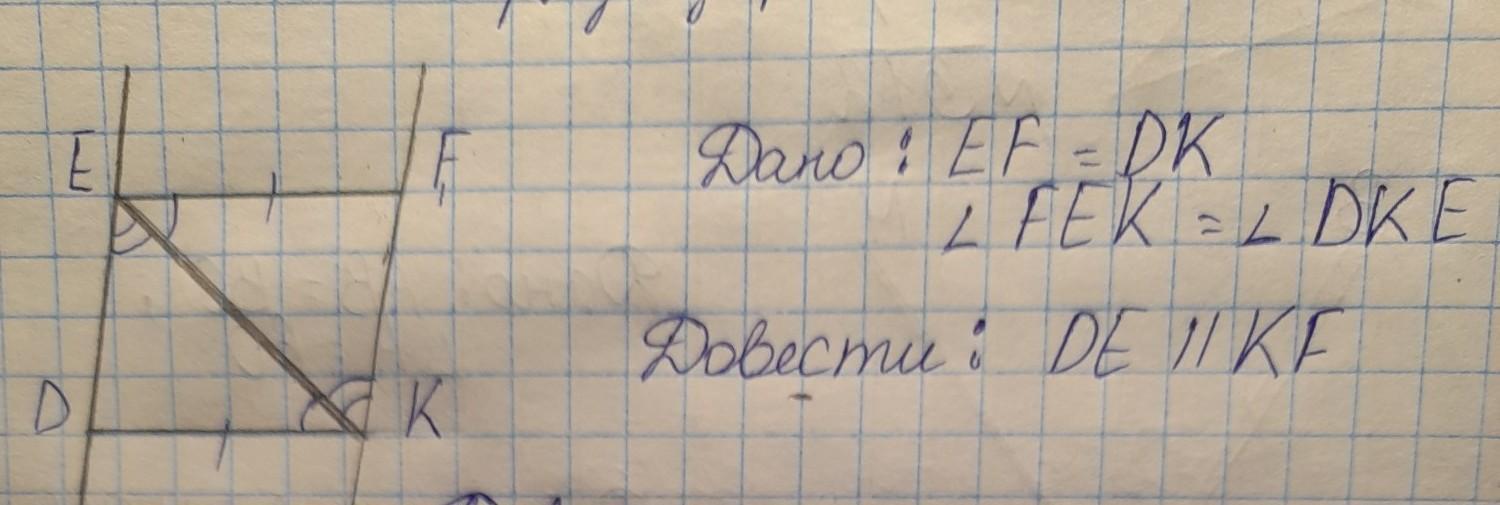 E
F
Дано : EF = DK
∠ FEK = ∠ DKE
Довести : DE || KF
D
K